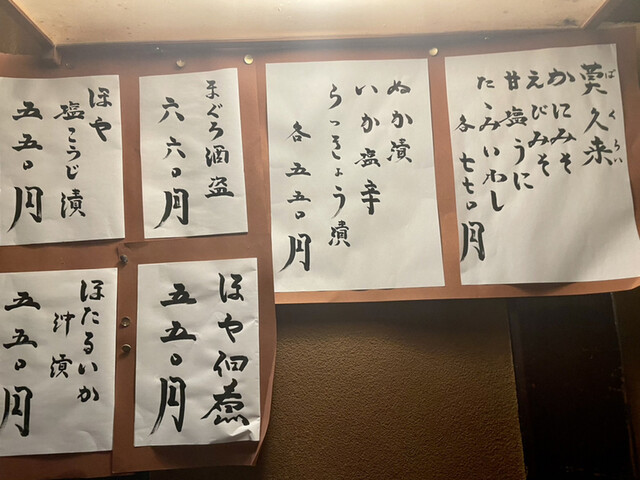 莫久来
ばくらい
かにみそ
えびみそ
甘塩うに
たゝみいわし
各 七七〇円
ぬか漬
いか塩辛
らっきょう漬
各 五五〇円
まぐろ酒盗
六六〇円
ほや
塩こうじ漬
五五〇円
ほや佃煮
五五〇円
ほたるいか
沖漬
五五〇円